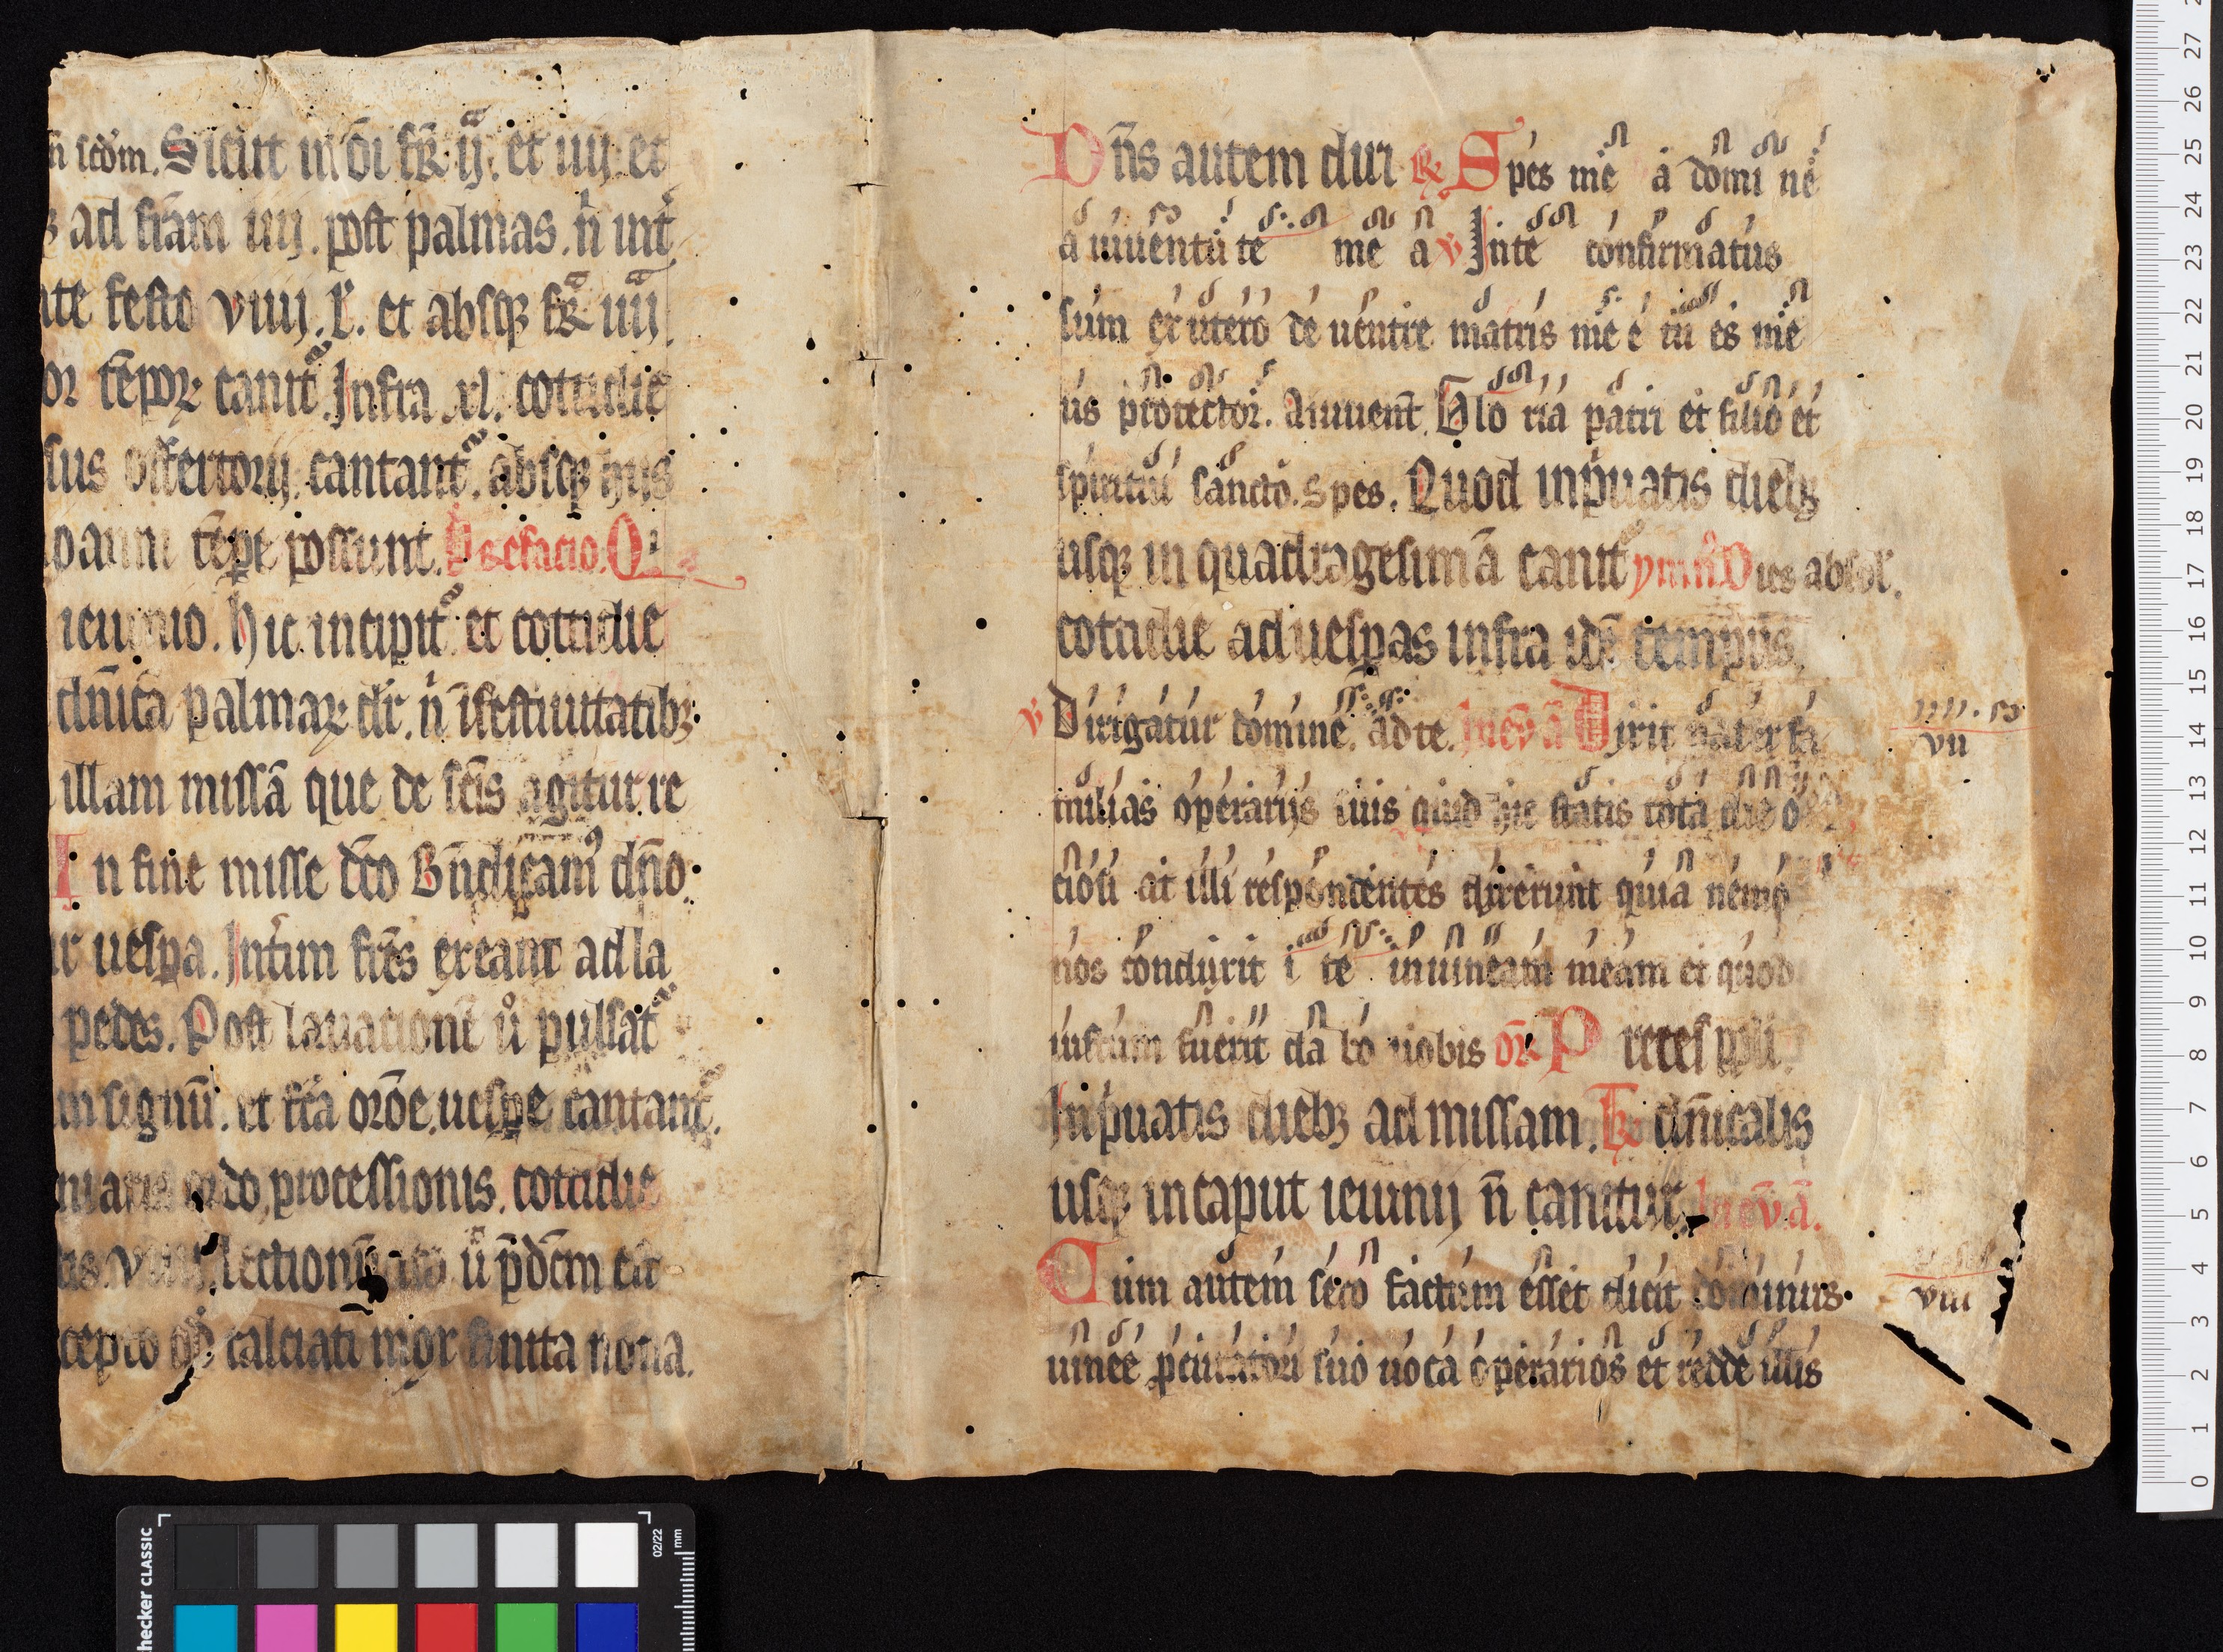 n̄ scdm. Sicut in oi fr̄ ij. et iiij et
ad friam iiij. post palmas. n̄ int
te festo viiij. l. et absqʒ fr̄ iiij
or tēpoꝝ canit. Infra xl. cottidie
sus offertorij cantant. absqʒ hijs
anni tēpe possunt. Prefacio. Q
ieiunio. hic incipit et cottidie
dn̄ica palmaꝝ dr̄. n̄ ī festiuitatibʒ
illam missā que de scīs agitur re
In fine misse dc̄o Bn̄dicam dn̄o.
r uesꝑa. Intīm frēs exeant ad la
pedes. Post lauationē ů pulsat
m signū. et fc̄a orōe. uesꝑe cantant.
ordo processionis. cottidie
lectionū ů p̄dc̄m est
cepto calciati finita nona.
Dn̄s autem dux R Spes me a domi ne
a iuuentu te me a v Inte confirmatus
sum ex utero de uentre matris me e tu es me
us protector. Aiuuent. Glo ria patri et filio et
spiritui sancto. Spes. Quod in p̄uatis diebʒ
usqʒ in quadragesimā canit ymn̄ Dies absol.
cottidie ad uesꝑas infra idē tempus.
v Dirigatur domine. ad te. In ev̄a Dixit pater fa
vii
milias operarijs suis quid hic statis tota die o
ciosi at illi respondentes dixerunt quia nemo
nos conduxit i te in uineam meam et quod
iustum fuerit da bo uobis or̄ P reces ppli
In p̄uatis diebʒ ad missam. K dn̄icalis
usqʒ in caput ieiunij n̄ canitur. In ev̄a.
Cum autem sero factum esset dicit dominus
viii
uinee ꝓcuratori suo uoca operarios et redde illis
27
26
25
24
23
22
21
20
19
18
17
16
15
14
13
12
11
10
9
8
7
6
5
4
3
2
1
0
checker CLASSIC
02/22
mm